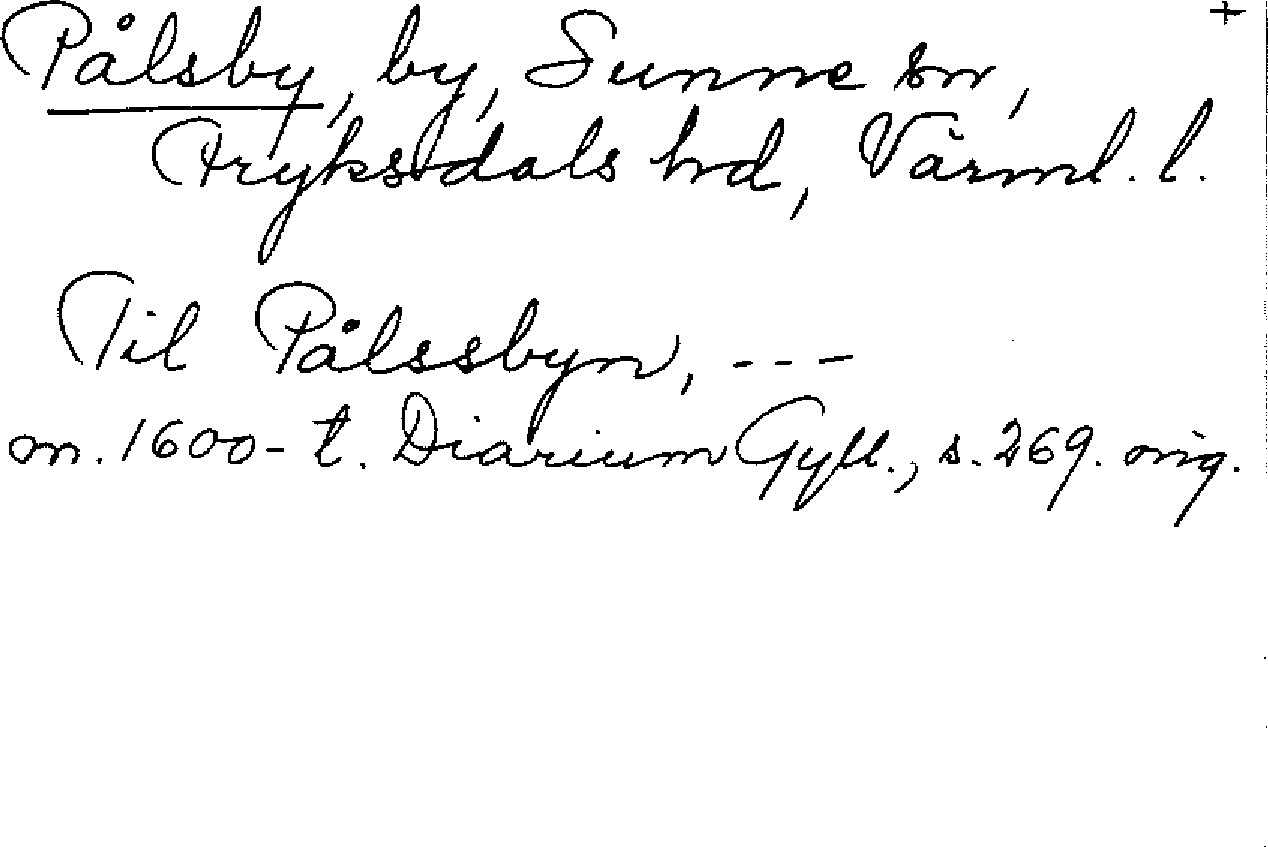 Pålsby, by, Sunne sn, +
Fryksdals hd, Värml. l.
Til Pålssbyn, ---
m. 1600-t. Diarium Gyll., s. 269. orig.